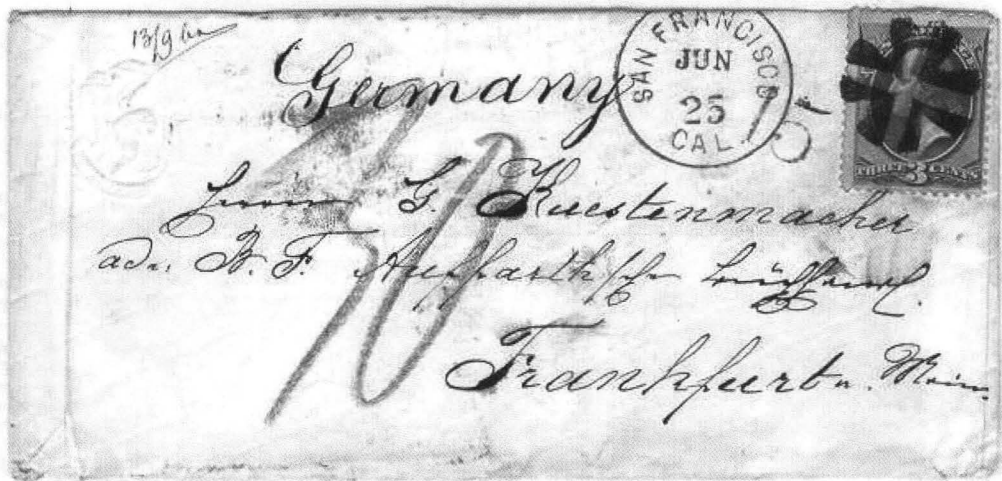 13/9
Germany
SAN FRANCISCO
JUN
25
CAL.
THREE 3 CENTS
Herrn G. Kuestenmacher
adr. B. F. Auffarth'sche
Frankfurt a. Main.